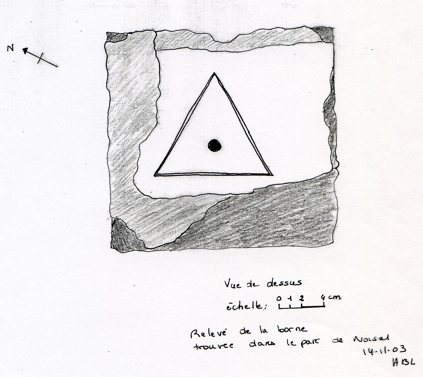 N
Vue de dessus
échelle: 0 1 2 4 cm
Relevé de la borne
trouvée dans le parc de Noisiel
14-11-03
ABL